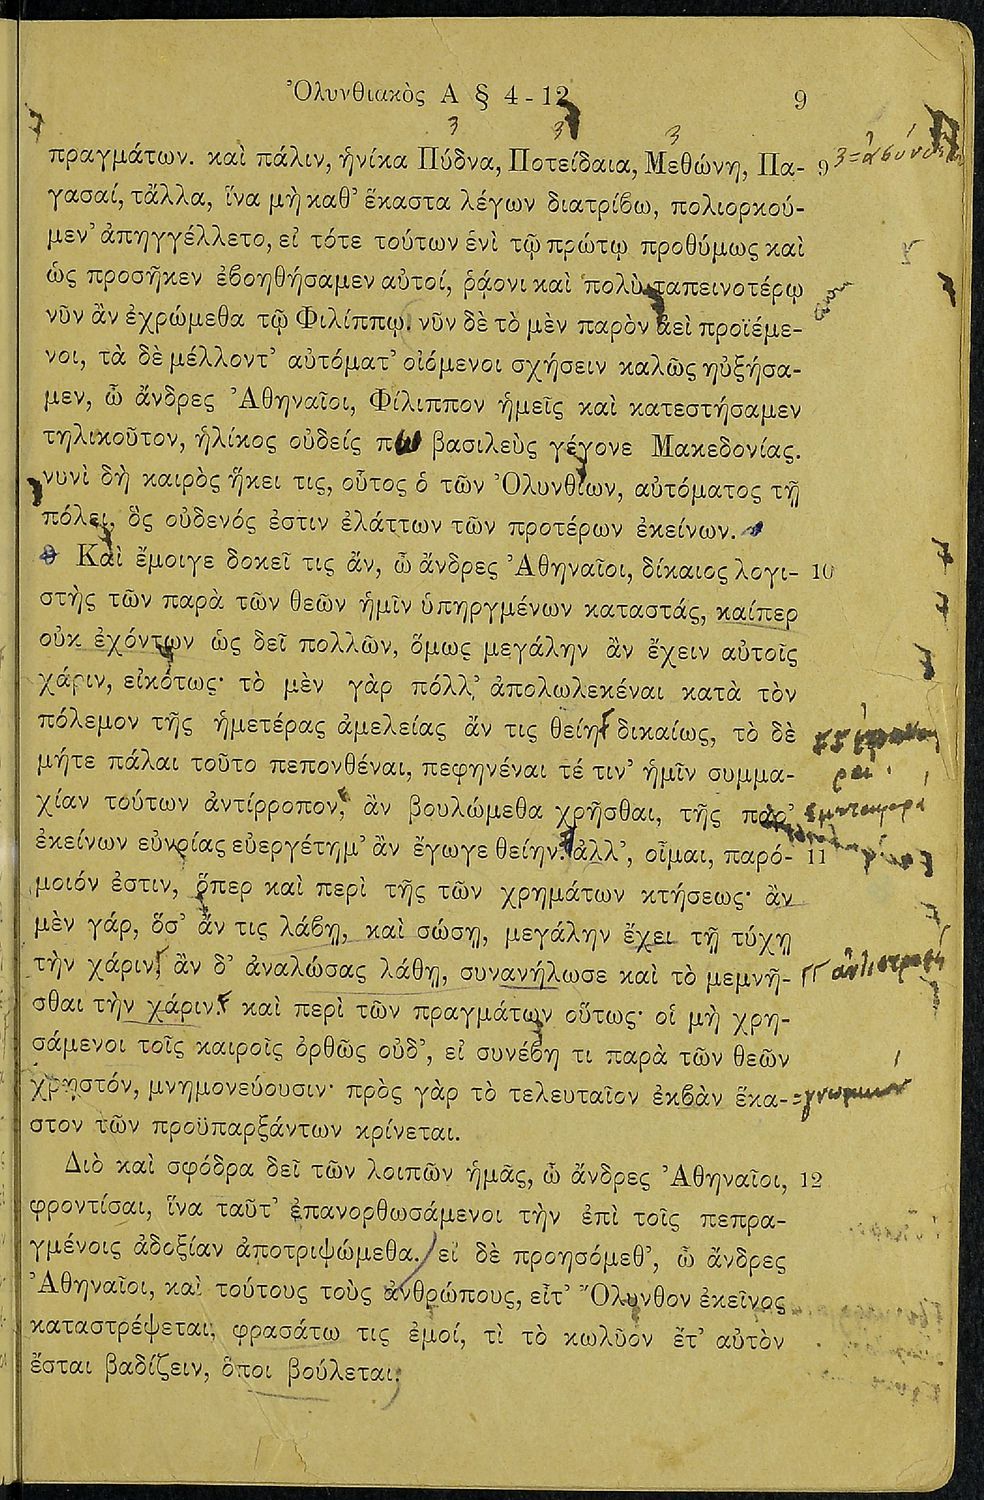 Ὀλυνθιακὸς Α § 4 - 12 9
3 3 3
πραγμάτων. καὶ πάλιν, ἡνίκα Πύδνα, Ποτείδαια, Μεθώνη, Πα- 9
γασαί, τἄλλα, ἵνα μὴ καθ’ ἕκαστα λέγων διατρίβω, πολιορκού-
μεν’ ἀπηγγέλλετο, εἰ τότε τούτων ἑνὶ τῷ πρώτῳ προθύμως καὶ
ὡς προσῆκεν ἐβοηθήσαμεν αὐτοί, ῥᾴονι καὶ πολὺ ταπεινοτέρῳ
νῦν ἂν ἐχρώμεθα τῷ Φιλίππῳ. νῦν δὲ τὸ μὲν παρὸν ἀεὶ προϊέμε-
νοι, τὰ δὲ μέλλοντ’ αὐτόματ’ οἰόμενοι σχήσειν καλῶς ηὐξήσα-
μεν, ὦ ἄνδρες Ἀθηναῖοι, Φίλιππον ἡμεῖς καὶ κατεστήσαμεν
τηλικοῦτον, ἡλίκος οὐδείς πω βασιλεὺς γέγονε Μακεδονίας.
νυνὶ δὴ καιρὸς ἥκει τις, οὗτος ὁ τῶν Ὀλυνθίων, αὐτόματος τῇ
πόλει, ὃς οὐδενός ἐστιν ἐλάττων τῶν προτέρων ἐκείνων.
Καὶ ἔμοιγε δοκεῖ τις ἄν, ὦ ἄνδρες Ἀθηναῖοι, δίκαιος λογι- 10
στὴς τῶν παρὰ τῶν θεῶν ἡμῖν ὑπηργμένων καταστάς, καίπερ
οὐκ ἐχόντων ὡς δεῖ πολλῶν, ὅμως μεγάλην ἂν ἔχειν αὐτοῖς
χάριν, εἰκότως· τὸ μὲν γὰρ πόλλ’ ἀπολωλεκέναι κατὰ τὸν
πόλεμον τῆς ἡμετέρας ἀμελείας ἄν τις θείη δικαίως, τὸ δὲ
μήτε πάλαι τοῦτο πεπονθέναι, πεφηνέναι τέ τιν’ ἡμῖν συμμα-
χίαν τούτων ἀντίρροπον, ἂν βουλώμεθα χρῆσθαι, τῆς παρ’
ἐκείνων εὐνοίας εὐεργέτημ’ ἂν ἔγωγε θείην. ἀλλ’, οἶμαι, παρό- 11
μοιόν ἐστιν, ὅπερ καὶ περὶ τῆς τῶν χρημάτων κτήσεως· ἂν
μὲν γάρ, ὅσ’ ἄν τις λάβῃ, καὶ σώσῃ, μεγάλην ἔχει τῇ τύχῃ
τὴν χάριν, ἂν δ’ ἀναλώσας λάθῃ, συνανήλωσε καὶ τὸ μεμνῆ-
σθαι τὴν χάριν. καὶ περὶ τῶν πραγμάτων οὕτως· οἱ μὴ χρη-
σάμενοι τοῖς καιροῖς ὀρθῶς οὐδ’, εἰ συνέβη τι παρὰ τῶν θεῶν
χρηστόν, μνημονεύουσιν· πρὸς γὰρ τὸ τελευταῖον ἐκβὰν ἕκα-
στον τῶν προϋπαρξάντων κρίνεται.
Διὸ καὶ σφόδρα δεῖ τῶν λοιπῶν ἡμᾶς, ὦ ἄνδρες Ἀθηναῖοι, 12
φροντίσαι, ἵνα ταῦτ’ ἐπανορθωσάμενοι τὴν ἐπὶ τοῖς πεπρα-
γμένοις ἀδοξίαν ἀποτριψώμεθα. εἰ δὲ προησόμεθ’, ὦ ἄνδρες
Ἀθηναῖοι, καὶ τούτους τοὺς ἀνθρώπους, εἶτ’ Ὄλυνθον ἐκεῖνος
καταστρέψεται, φρασάτω τις ἐμοί, τὶ τὸ κωλῦον ἔτ’ αὐτὸν
ἔσται βαδίζειν, ὅποι βούλεται;